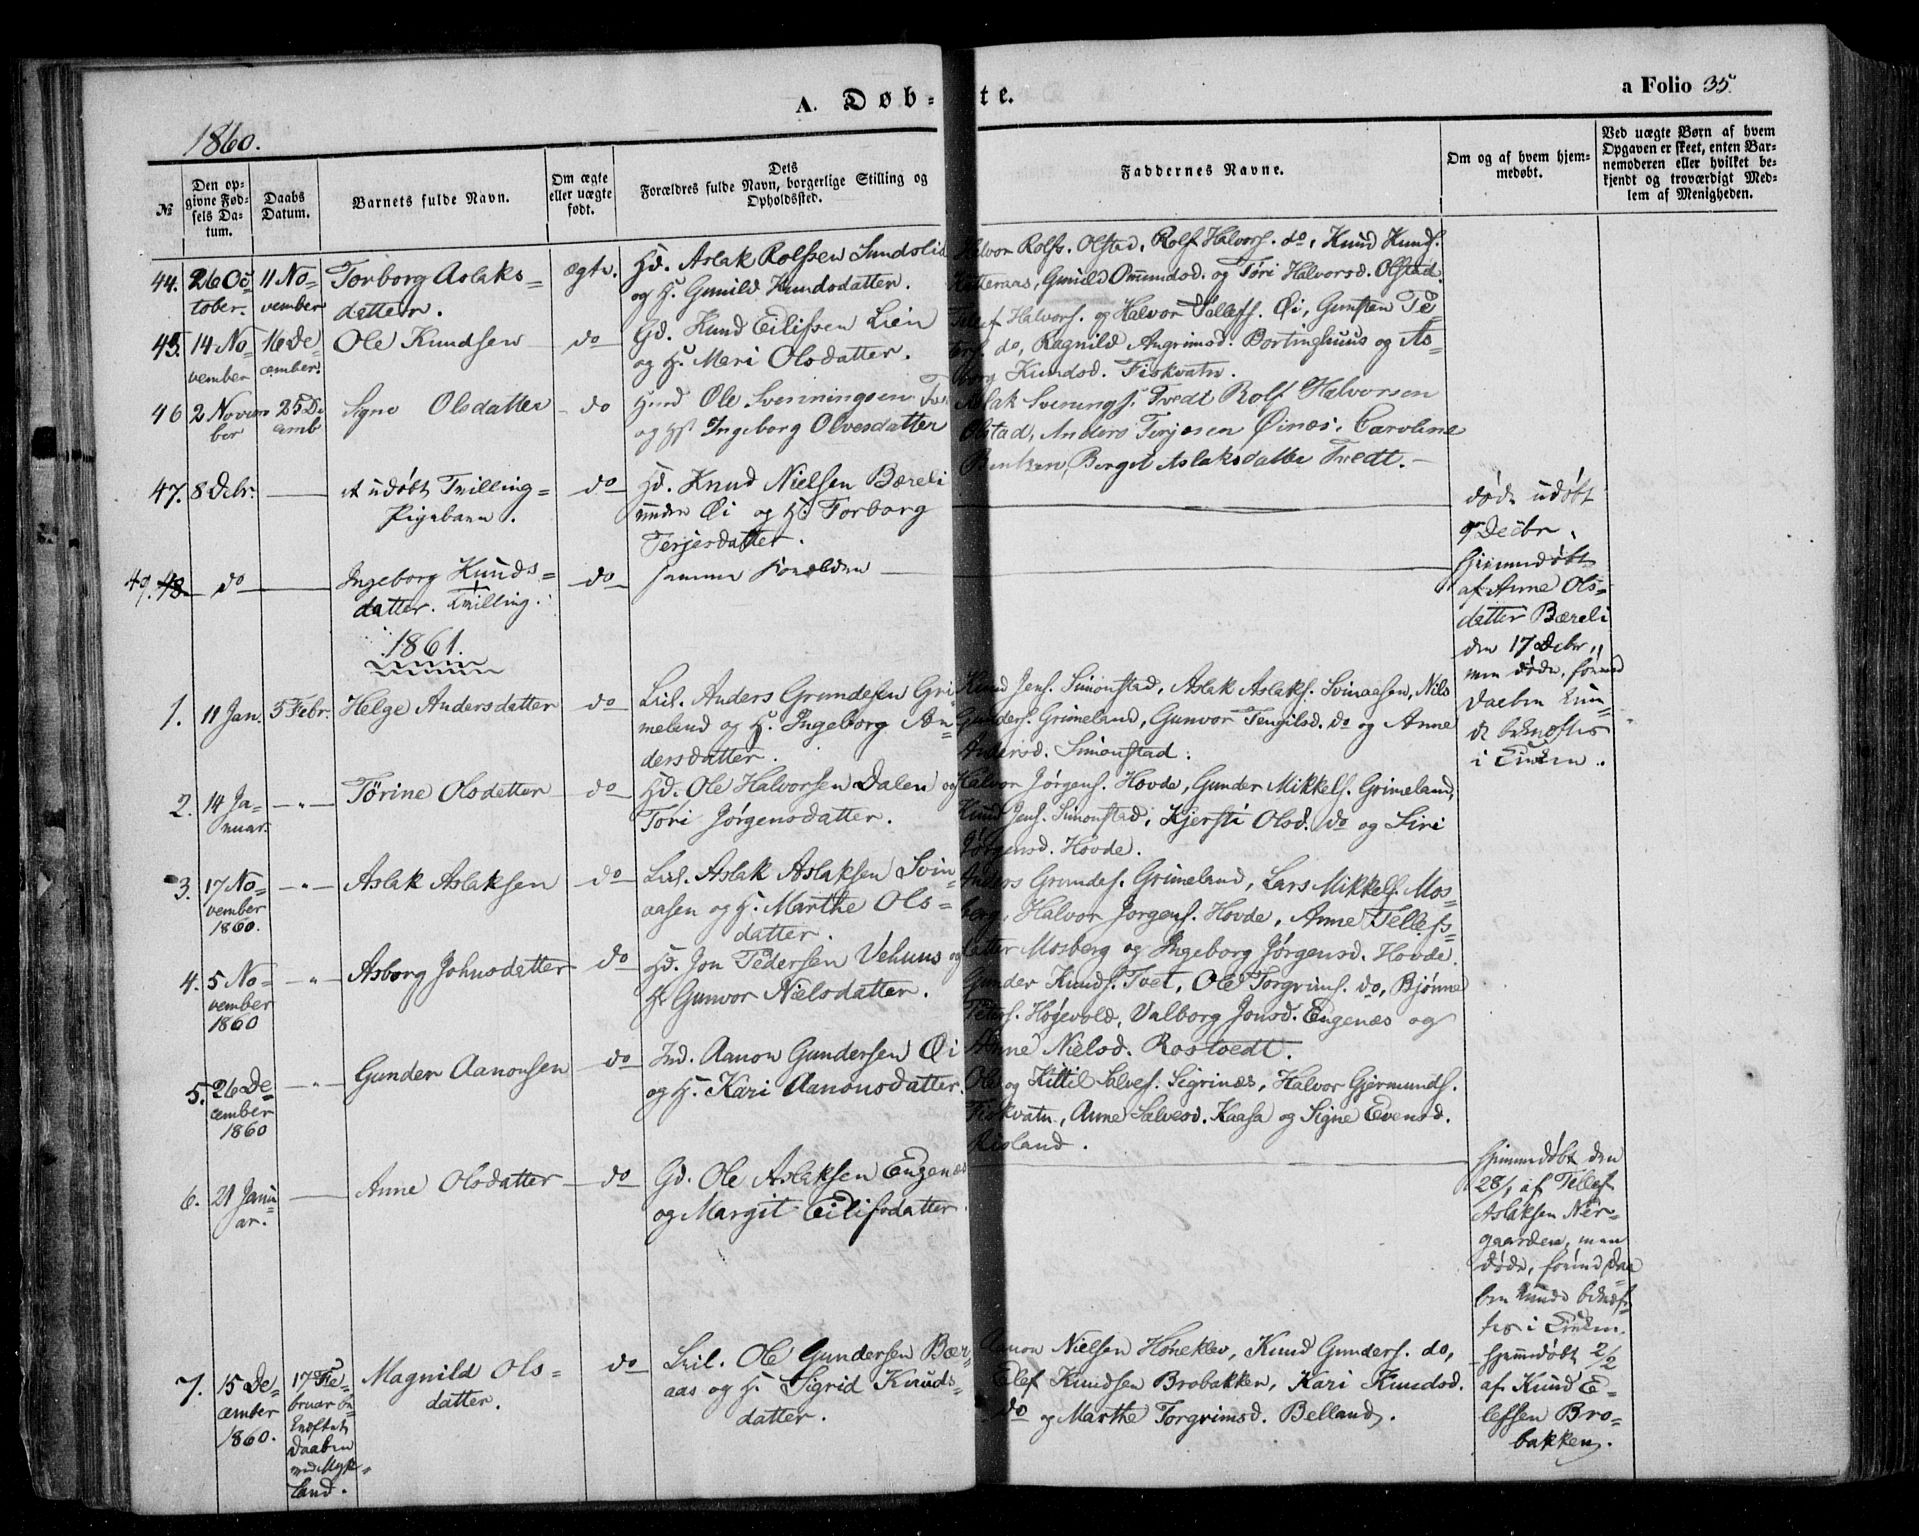 A. Døb-te.
a Folio 35
1860.
№
Den op-
givne Fød-
sels Da-
tum.
Daabs
Datum.
Barnets fulde Navn.
Om ægte
eller uægte
født.
Dets
Forældres fulde Navn, borgerlige Stilling og
Opholdssted.
Faddernes Navne.
Om og af hvem hjem-
medøbt.
Ved uægte Børn af hvem
Opgaven er skeet, enten Bar-
nemoderen eller hvilket be-
kjendt og troværdigt Med-
lem af Menigheden.
44. 26 Oc-
tober.
11 No-
vember
Torborg Aslaks-
datter.
ægte.
Hd. Aslak Rolfsen Sundsli
og H. Gunild Knudsdatter.
Halvor Rolfs. Olstad, Rolf Halvors. do, Knud Knuds.
Gunild Ommundsd. og Töri Halvorsd. Olstad
45. 14 No-
vember
16 De-
cember.
Ole Knudsen
do
Gd. Knud Eilifsen Lien
og H. Meri Olsdatter.
Tellef Halvors. og Halvor Tellefs. Øi, Gunsten Te-
do, Ragnild Angrimsd. Bortinghuus og As-
borg Knudsd. Fiskvatn.
46 2 Novem
ber
25 De
cemb
Signe Olsdatter
do
Ole Svenningsen
og H. Ingeborg Olvesdatter
Aslak Svennings. Tvedt Rolf Halvorsen
Olstad, Anders Terjesen Øinæs, Caroline
Bentzen, Berget Aslaksdatter Tvedt.
47. 8 Debr.
et udøbt Tvilling-
Pigebarn.
do
Hd. Knud Nielsen Bæreli
under Øi og H. Torborg
Terjesdatter.
døde udøbt
9 Decbr.
49. 48 do
Ingeborg Knuds-
datter. Tvilling.
do
samme Forældre
hjemmedøbt
af Anne Ols-
datter Bæreli
den 17 Debr.,
men døde, førend
Daaben kun-
de bekræftes
i Kirken.
1861.
1. 11 Jan.
5 Febr.
Helge Andersdatter
do
Leil. Anders Grundesen Gri-
meland og H. Ingeborg An-
dersdatter.
Knud Jens. Simonstad, Aslak Aslaks. Svinaasen, Nils
Gunders. Grimeland, Gunvor Tengilsd. do og Anne
Andersd. Simonstad.
2. 14 Ja-
nuar.
-"-
Törine Olsdatter
do
Hd. Ole Halvorsen Dalen og
Töri Jörgensdatter.
Halvor Jørgens. Hovde, Gunder Mikkels. Grimeland,
Knud Jens. Simonstad, Kjersti Olsd. do og Siri
Jørgensd. Hovde.
3. 17 No-
vember
1860.
-"-
Aslak Aslaksen
do
Leil. Aslak Aslaksen Svin-
aasen og H. Marthe Ols-
datter.
Anders Grundes. Grimeland, Lars Mikkels. Mos-
berg, Halvor Jørgens. Hovde, Anne Tellefs-
datter Mosberg og Ingeborg Jørgensd. Hovde.
4. 5 No-
vember
1860
"
Asborg Johnsdatter
do
Hd. Jon Pedersen Vehuus og
H. Gunvor Nielsdatter.
Gunder Knuds. Tvet, Ole Torgrims. do, Bjønne
Peters. Høgevold, Valborg Jonsd. Eugenæs og
Anne Nielsd. Rostvedt.
5. 26 De-
cember
1860
-"-
Gunder Aanonsen
do
Ind. Aanon Gundersen Øi
og H. Kari Aanonsdatter.
Ole og Kittil Salves. Sigrinæs, Halvor Gjermunds.
Fiskvatn, Anne Salvesd. Kaasa og Signe Evensd.
Risland.
6. 21 Janu-
ar.
Anne Olsdatter
do
Gd. Ole Aslaksen Eugenæs
og Margit Eilifsdatter.
hjemmedøbt den
28/1 af Tellef
Aslaksen Ner-
gaarden, men
døde, førend Daa
ben kunde bekræf-
tes i Kirken.
7. 15 De-
cember
1860.
17 Fe-
bruar be-
kræftet
Daaben
ved Myk-
land.
Magnild Ols-
datter.
do
Leil. Ole Gundersen Bær-
aas og H. Sigrid Knuds-
datter.
Aanon Nielsen Høneklev, Knud Gunders. do,
Elef Knudsen Brobakken, Kari Knudsd.
do og Marthe Torgrimsd. Belland.
hjemmedøbt 2/2
af Knud E-
lefsen Bro-
bakken.